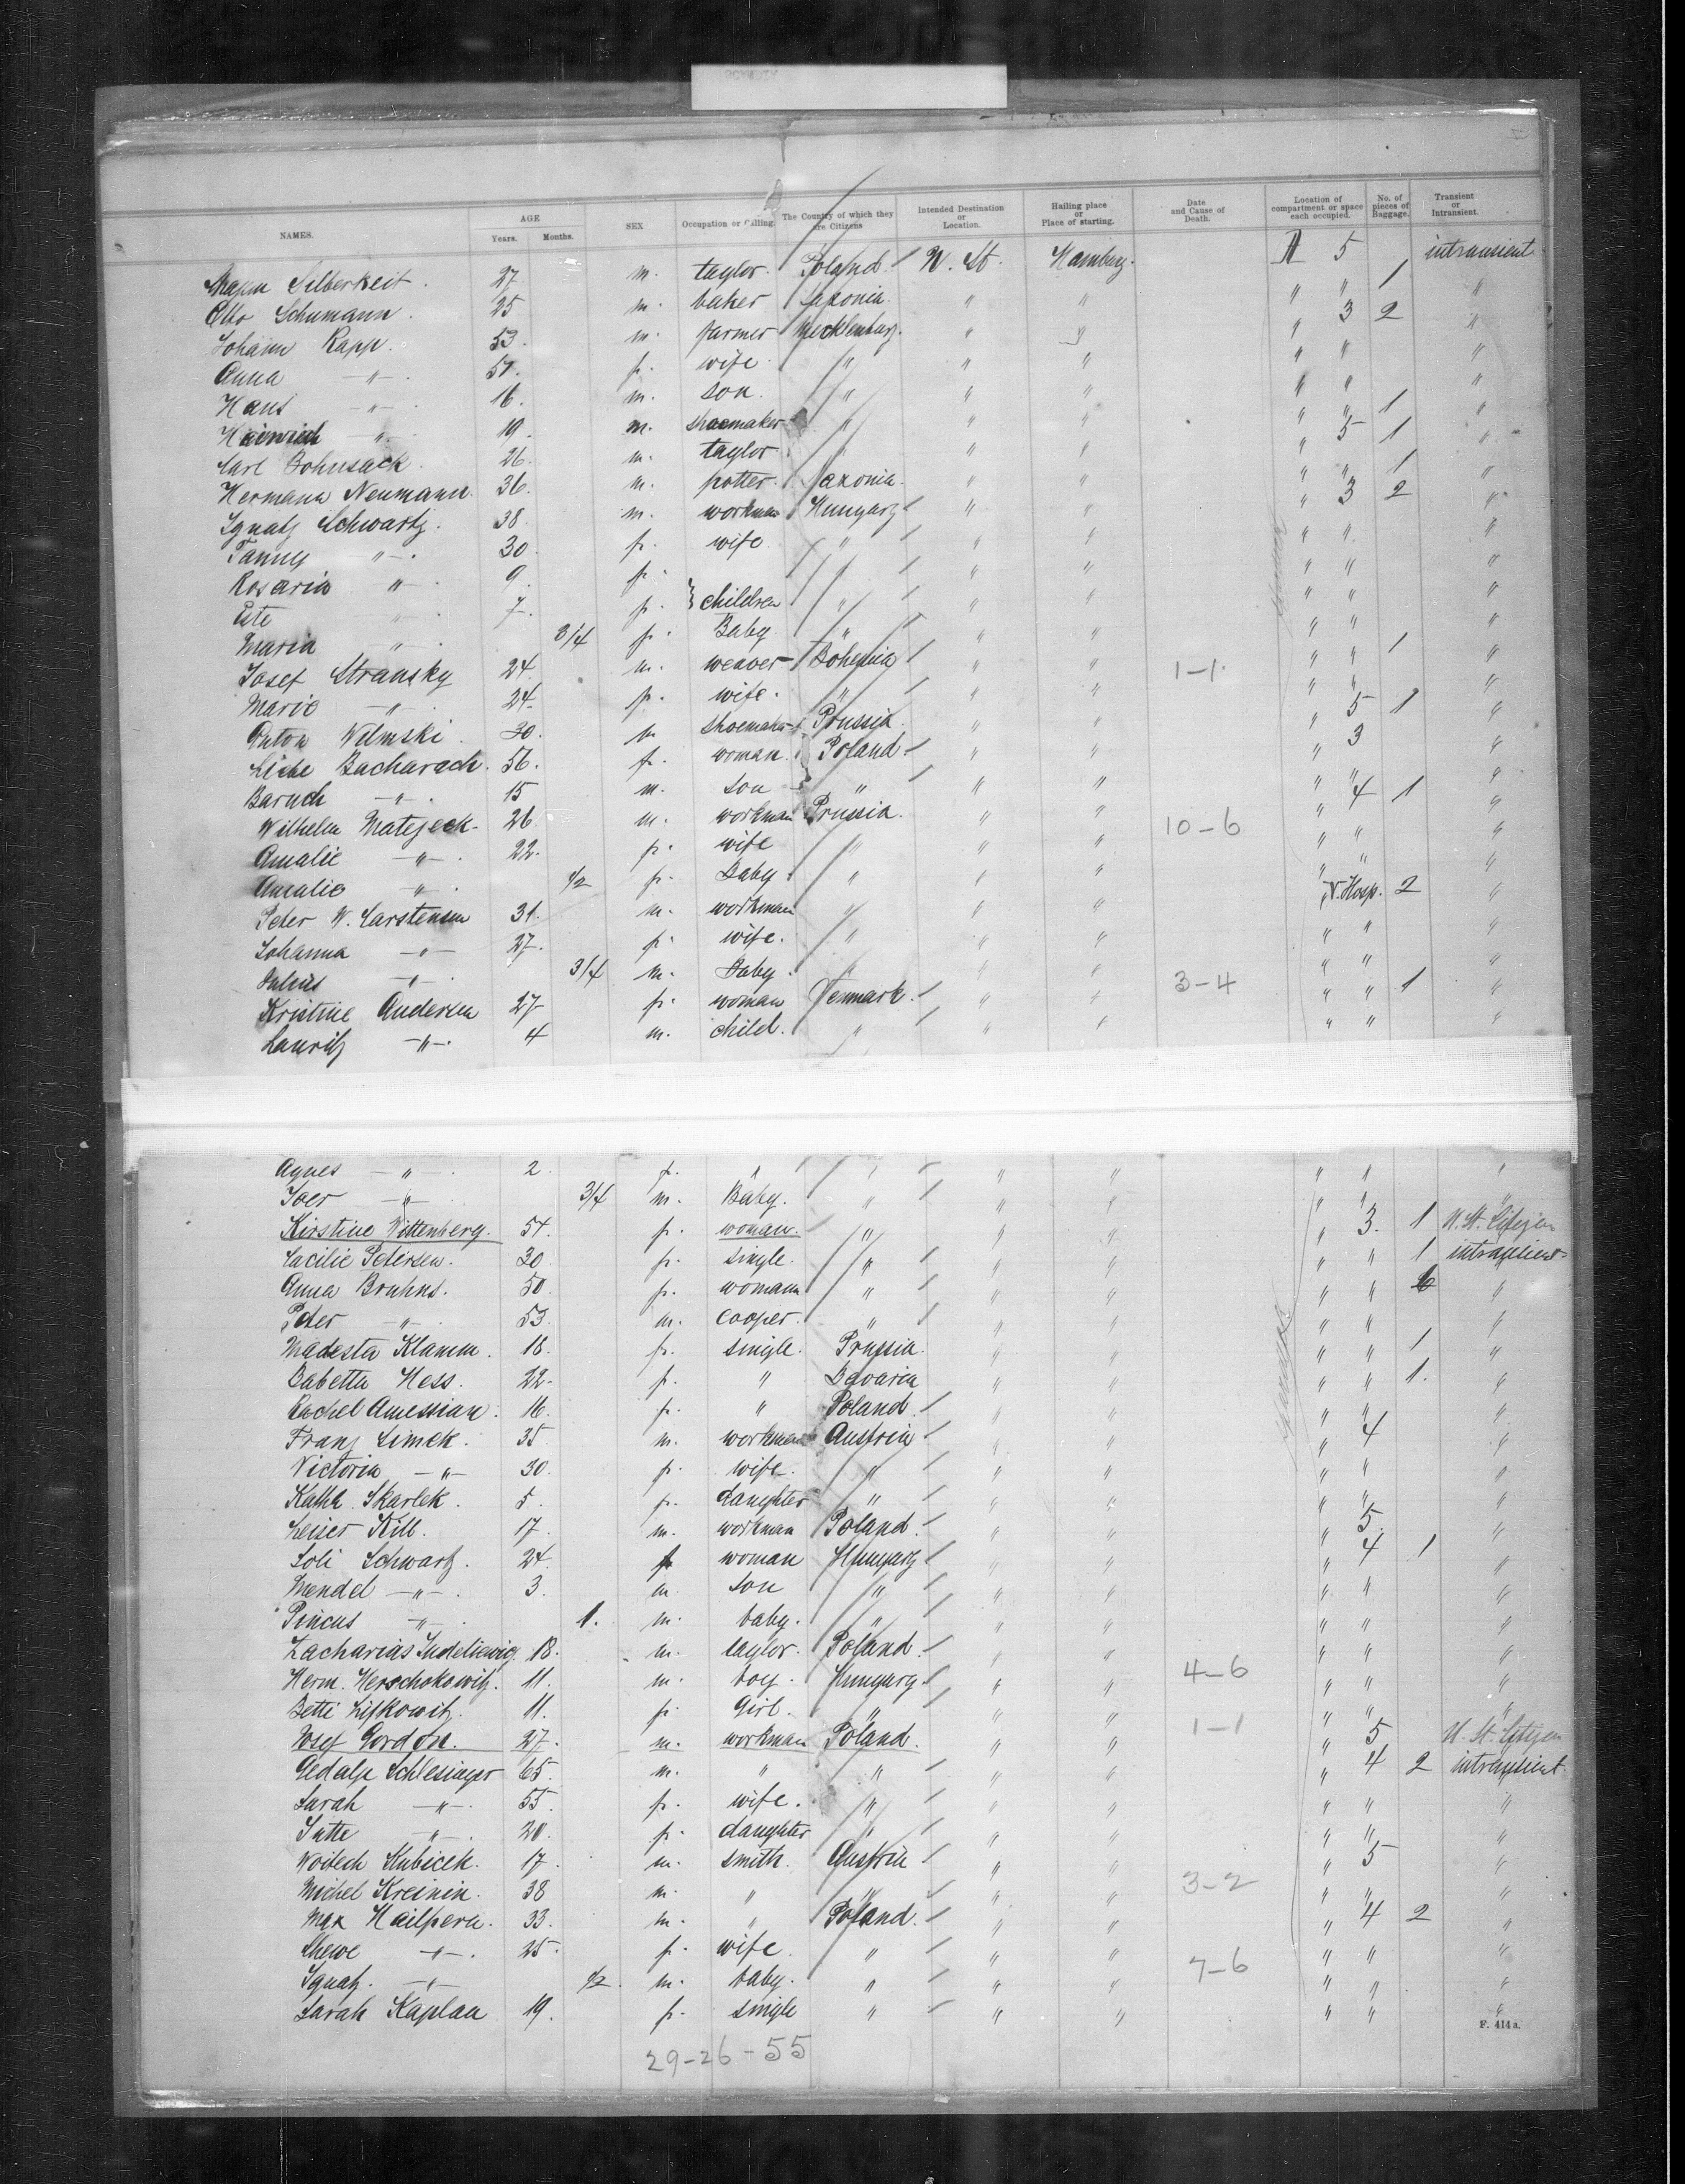 NAMES. AGE Years. Months. SEX Occupation or Calling. The Country of which they are Citizens Intended Destination or Location. Hailing place or Place of starting. Date and Cause of Death. Location of compartment or space each occupied. No. of pieces of Baggage. Transient or Intransient.
Silberkeit. 27 m. taylor. Poland. U. St. Hamburg. A 5 intransient
Otto Schumann. 25 m. baker Saxonia. " " " " 1 "
Johann Rapp. 53. m. farmer Mecklenburg. " " " 3 2 "
Anna -"-. 51. f. wife " " " " " "
Hans -"-. 16. m. son. " " " " " "
Heinrich -"-. 19. m. shoemaker " " " " " 1 "
Carl Bohnsack. 26. m. taylor " " " " 5 1 "
Hermann Neumann. 36. m. potter. Saxonia. " " " " 1 "
Ignatz Schwartz. 38. m. workman Hungary " " " 3 2 "
Fanny -"-. 30. f. wife " " " " " "
Rosaria -"-. 9. f. " " " " " "
7. f. } children " " " " " "
Maria -"-. 3/4 f. Baby " " " " " "
Josef Stransky 24. m. weaver Bohemia " " 1-1. " " 1 "
Marie -"-. 24. f. wife. " " " " " "
Anton Wilmski. 30. m shoemaker Prussia. " " " 5 1 "
Liebe Bacharach. 56. f. woman. Poland " " " 3 "
Baruch -"-. 15 m. son " " " " " "
Wilhelm Matejeck 26 m. workman Prussia. " " 10-6 " 4 1 "
Amalie -"-. 22. f. wife " " " " " "
Amalie -"-. 1/2 f. Baby. " " " " " "
Peter W. Carstensen 31. m. workman " " " " V. Hosp. 2 "
Johanna -"- 27. f. wife. " " " " " "
Julius -"-. 3/4 m. Baby. " " " " " "
Kristine Andersen 27 f. woman Denmark. " " 3-4 " " 1 "
Lauritz -"-. 4 m. child. " " " " " "
Agnes -"-. 2. f. " " " " " " "
-"- 3/4 m. Baby. " " " " " "
Kirstine Wittenberg. 54. f. woman. " " " " 3. 1 U. St. Citizen
Cacilie Petersen. 30 f. single. " " " " " 1 intransient
Anna Bruhns. 50 f. womann " " " " " "
Peter -"-. 53. m. cooper. " " " " " "
Madesta Klamm. 18. f. single. Prussia. " " " " 1 "
Babetta Hess. 22. f. " Bavaria " " " " 1. "
Rachel Amessian. 16. f. " Poland. " " " " "
Franz Simek. 35. m. workman Austria " " " 4 "
Victoria -"- 30. f. wife. " " " " " "
Kath. Skarlek. 5. f. daughter " " " " " "
Leiser Kill. 17. m. workman Poland. " " " 5. "
Soli Schwartz. 24. f woman Hungary " " " 4 1 "
Mendel -"-. 3. m son " " " " " "
Pincus -"-. 1. m. baby. " " " " " "
18. m. taylor. Poland. " " " " "
Herm. Herschokowitz. 11. m. boy. Hungary. " " 4-6 " " "
Betti Lifkowitz. 11. f. Girl. " " " " " "
Josef Gordon. 27. m. workman Poland. " " 1-1 " 5 U. St. Citizen
Gedalje Schlesinger 65. m. " " " " " 4 2 intransient.
Sarah -"-. 55. f. wife. " " " " " "
Jutte -"-. 20. f. daughter " " " " " "
Woitech Kubicek. 17. m. smith. Austria " " " 5 "
Michel Kreinin. 38 m. " " " " 3-2 " " "
Max Hailpern. 33. m. " Poland. " " " 4 2 "
Shewe -"-. 25. f. wife. " " " " " "
Ignatz. -"- 1/2. m. baby. " " " 7-6 " " "
Sarah Kaplan 19. f. single " " " " " "
F. 414 a.
29-26-55